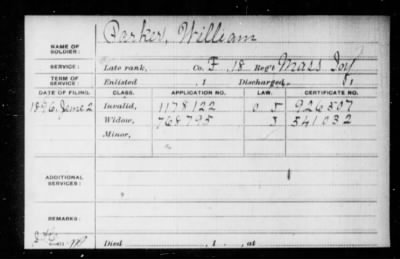 Parker, William
NAME OF SOLDIER:
SERVICE: Late rank, Co. F, 18 Reg't Mass Inf
TERM OF SERVICE: Enlisted , 1 Discharged , 1
DATE OF FILING. CLASS. APPLICATION NO. LAW. CERTIFICATE NO.
1896, June 2 Invalid, 1178122 926507
Widow, 768795 3 541032
Minor,
ADDITIONAL SERVICES:
REMARKS:
Died , 1 , at